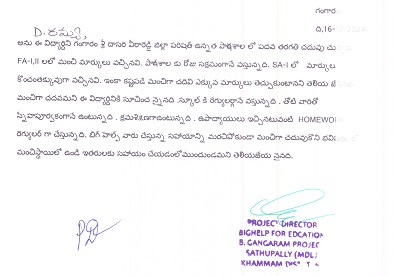 గంగారం
ది,16-
D. రమ్య,
అను ఈ విద్యార్థిని గంగారం శ్రీ దాసరి వీరారెడ్డి జిల్లా పరిషత్ ఉన్నత పాఠశాల లో పదవ తరగతి చదువు
FA-I,II లలో మంచి మార్కులు వచ్చినవి. పాఠశాల కు రోజు సక్రమంగానే వస్తున్నది. SA-I లో మార్కులు
కొంచెంతక్కువుగా వచ్చినవి. ఇంకా కష్టపడి మంచిగా చదివి ఎక్కువ మార్కులు తెచ్చుకుంటానని తెలియ
మంచిగా చదవమని ఈ విద్యార్థినికి సూచించ నైనది .స్కూల్ కి రెగ్యులర్గానే వస్తున్నది . తోటి వారితో
స్నేహపూర్వకంగానే ఉంటున్నది . క్రమశిక్షణగాఉంటున్నది . ఉపాధ్యాయులు ఇచ్చినటువంటి HOMEWORK
రెగ్యులర్ గా చేస్తున్నది. బిగ్ హెల్ప్ వారు చేస్తున్న సహాయాన్ని మరచిపోకుండా మంచిగా చదువుకొని
మంచిస్థాయిలో ఉండి ఇతరులకు సహాయం చేయడంలోముందుండమని తెలియజేయ నైనది.
PROJECT DIRECTOR
BIGHELP FOR EDCATION
B. GANGARAM PROJEC
SATHUPALLY (MDL)
KHAMMAM DIST.